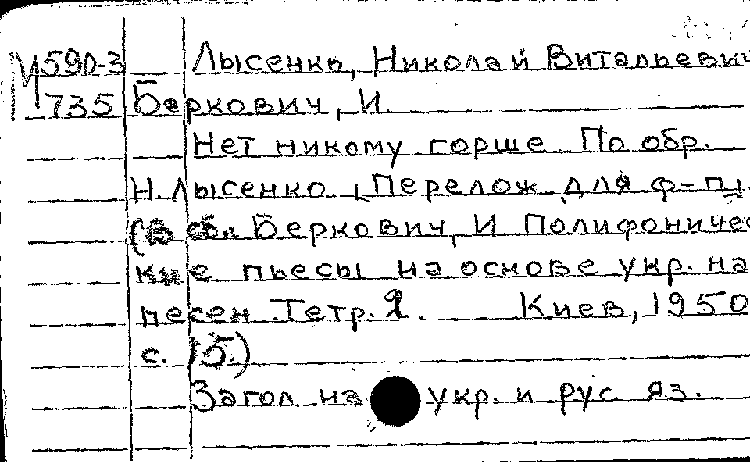 М590-3 Лысенко, Николай Витальевич
735 Беркович, И.
Нет никому горше. По обр.
Н. Лысенко, Перелож. для ф-п.
(В сб. Беркович, И. Полифоничес
кие пьесы на основе укр. на
песен. Тетр. 2. Киев, 1950
с. 15.)
Загол. на укр. и рус. яз.